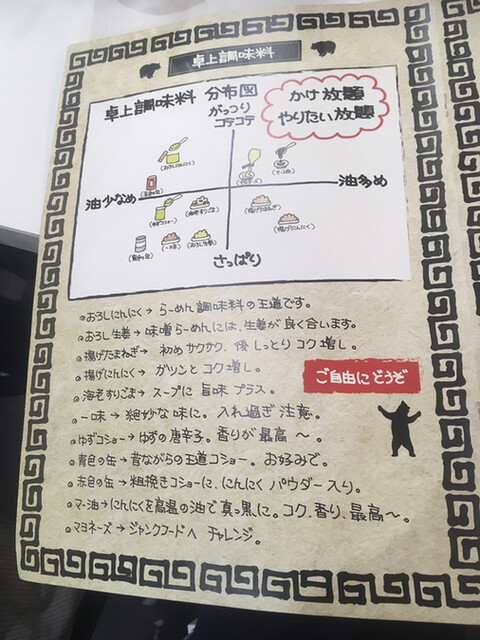 卓上調味料
卓上調味料 分布図
がっつり
コテコテ
かけ放題
やりたい放題
(おろしにんにく)
(マヨネーズ)
(マー油)
油少なめ
油多め
(赤色の缶)
(ゆずコショー)
(海老すりごま)
(揚げたまねぎ)
(揚げにんにく)
(青色の缶)
(一味)
(おろし生姜)
さっぱり
おろしにんにく→ らーめん 調味料の王道です。
おろし生姜→ 味噌らーめんには、生姜が良く合います。
揚げたまねぎ→ 初め サクサク、後 しっとり コク増し。
揚げにんにく→ ガツンと コク増し。
海老すりごま→ スープに 旨味 プラス。
一味→ 絶妙な味に。入れ過ぎ 注意。
ゆずコショー→ ゆずの唐辛子。香りが最高〜。
青色の缶→ 昔ながらの王道コショー。お好みで。
赤色の缶→ 粗挽きコショーに、にんにくパウダー入り。
マー油→にんにくを高温の油で真っ黒に。コク、香り、最高〜。
マヨネーズ→ ジャンクフードへ チャレンジ。
ご自由にどうぞ